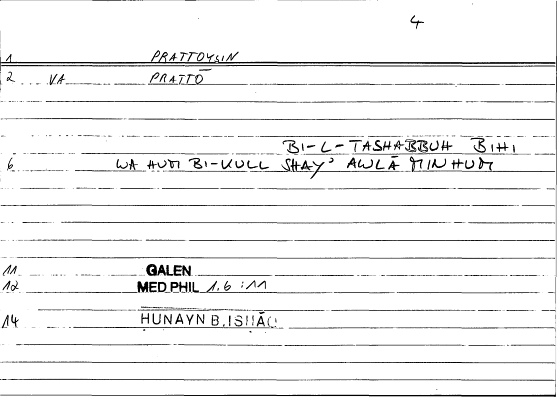 4
1 PRATTOUSIN
2 VA PRATTŌ
BI-L-TASHABBUH BIHI
6 WA HUM BI-KULL SHAY' AWLĀ MINHUM
11 GALEN
12 MED PHIL 1.6 :11
14 HUNAYN B. ISHĀQ